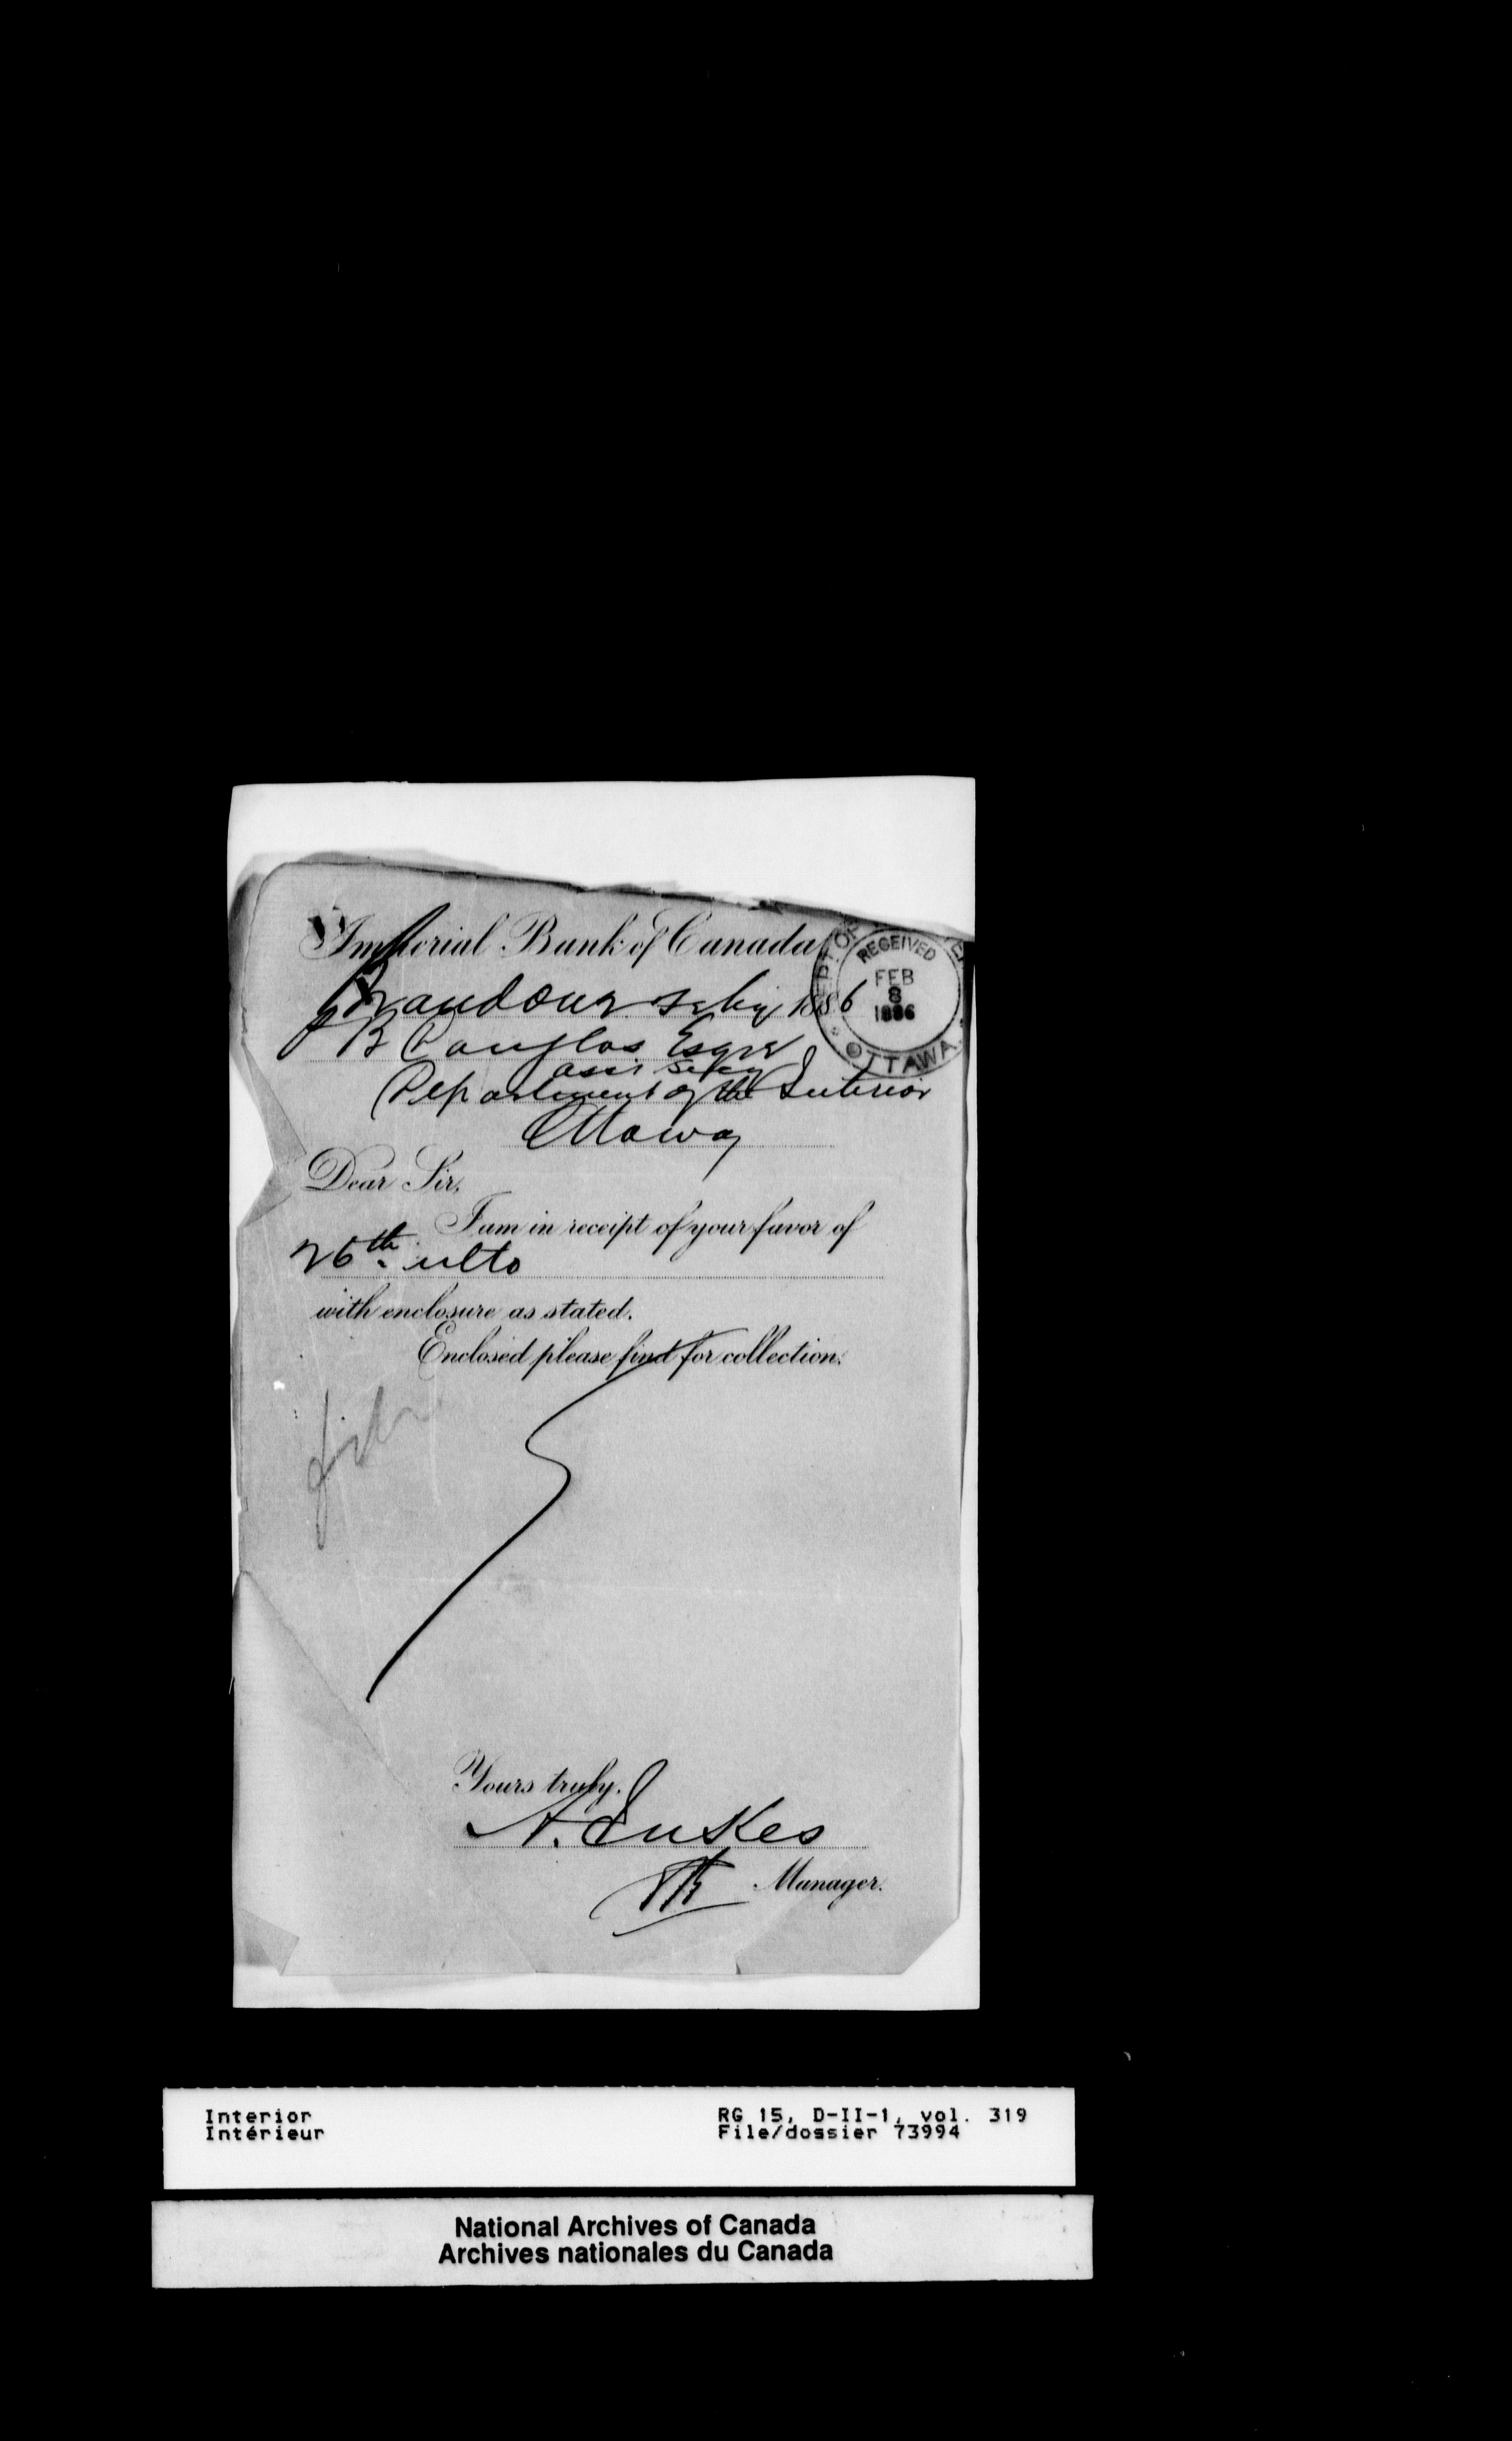 Imperial Bank of Canada
DEPT OF
RECEIVED
FEB
8
1886
OTTAWA
Brandon 1886
B Douglas Esqre
asst Secy
Department of the Interior
Ottawa
Dear Sir,
I am in receipt of your favor of
26th ulto
with enclosure as stated.
Enclosed please find for collection:
Yours truly.
A. Jukes
Manager.
Interior
Intérieur
RG 15, D-II-1, vol. 319
File/dossier 73994
National Archives of Canada
Archives nationales du Canada